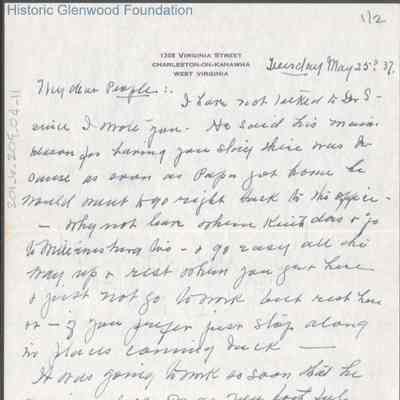 Historic Glenwood Foundation
1/2
1308 VIRGINIA STREET
CHARLESTON-ON-KANAWHA
WEST VIRGINIA
Tuesday May 25th 37.
My dear People:.
I have not talked to Dr. S-
since I wrote you. He said his main
reason for having you stay there was be
cause as soon as Papa got home he
would want to go right back to his office -
- Why not leave when does & go
to Williamsburg too - & go easy all the
way up & rest when you get here
& just not go to work but rest here
or - if you prefer just stop along
in places coming back -
It was going to work so soon that he